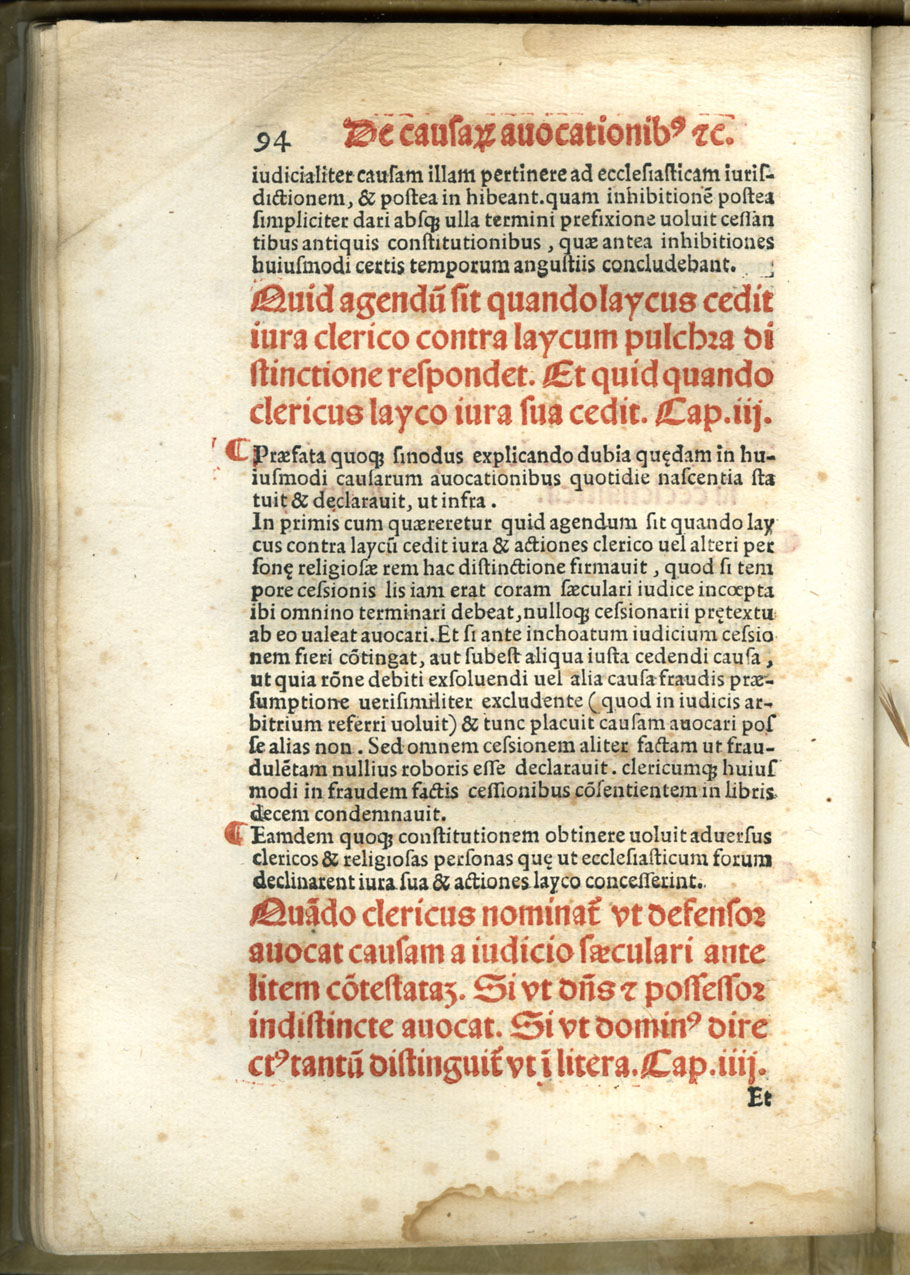 94 De causaꝝ auocationibꝰ ⁊c.
iudicialiter causam illam pertinere ad ecclesiasticam iuriſ-
dictionem, & poſtea in hibeant.quam inhibitionẽ poſtea
ſimpliciter dari abſqꝫ ulla termini prefixione uoluit ceſſan
tibus antiquis conſtitutionibus , quæ antea inhibitiones
huiuſmodi certis temporum anguſtiis concludebant.
Quid agendũ ſit quando laycus cedit
iura clerico contra laycum pulchꝛa di
ſtinctione reſpondet. Et quid quando
clericus layco iura ſua cedit. Cap.iij.
¶ Præfata quoqꝫ ſinodus explicando dubia quędam in hu-
iuſmodi cauſarum auocationibus quotidie naſcentia ſta
tuit & declarauit, ut infra .
In primis cum quæreretur quid agendum ſit quando lay
cus contra laycũ cedit iura & actiones clerico uel alteri per
ſonę religioſæ rem hac diſtinctione firmauit , quod ſi tem
pore ceſſionis lis iam erat coram ſæculari iudice incœpta
ibi omnino terminari debeat,nulloqꝫ ceſſionarii prętextu
ab eo ualeat auocari.Et ſi ante inchoatum iudicium ceſſio
nem fieri cõtingat, aut ſubeſt aliqua iuſta cedendi cauſa ,
ut quia rõne debiti exſoluendi uel alia cauſa fraudis præ-
ſumptione ueriſimiliter excludente ( quod in iudicis ar-
bitrium referri uoluit) & tunc placuit cauſam auocari poſ
ſe alias non . Sed omnem ceſſionem aliter factam ut frau-
dulẽtam nullius roboris eſſe declarauit . clericumqꝫ huiuſ
modi in fraudem factis ceſſionibus cõſentientem in libris
decem condemnauit.
¶ Eamdem quoqꝫ conſtitutionem obtinere uoluit aduerſus
clericos & religioſas perſonas quę ut eccleſiaſticum forum
declinarent iura ſua & actiones layco conceſſerint.
Quãdo clericus nominat̃ vt defenſoꝛ
auocat cauſam a iudicio ſæculari ante
litem cõteſtataꝫ. Si vt dñs ⁊ poſſeſſoꝛ
indiſtincte auocat. Si vt dominꝰ dire
ctꝰ tantũ diſtinguit̃ vt ĩ litera. Cap.iiij.
Et